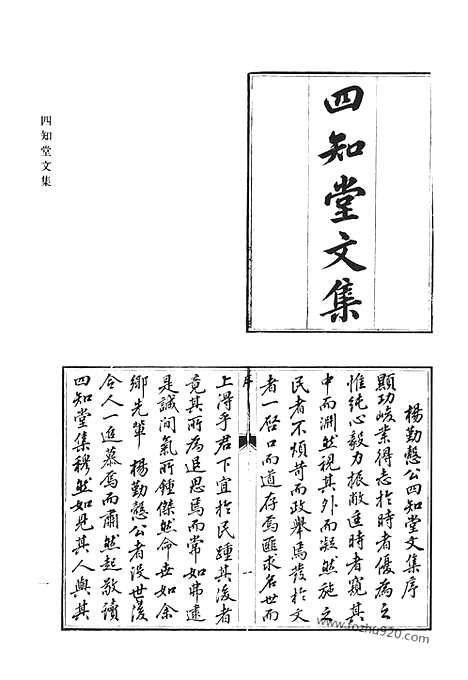 四知堂文集
四知堂文集
楊勤慤公四知堂文集序
顯功峻業得志於時者優為之
惟純心毅力振敝達時者窺其
中而淵然視其外而凝然施之
民者不煩苛而政舉焉發於文
者一啓口而道存焉匪求名世而
序
一
上得乎君下宜於民踵其後者
竟其所為追思焉而常如弗逮
是誠間氣所鍾傑然命世如余
鄉先輩楊勤慤公者沒世後
令人一追慕焉而肅然起敬讀
四知堂集穆然如見其人與其
一
www.fozhu920.com